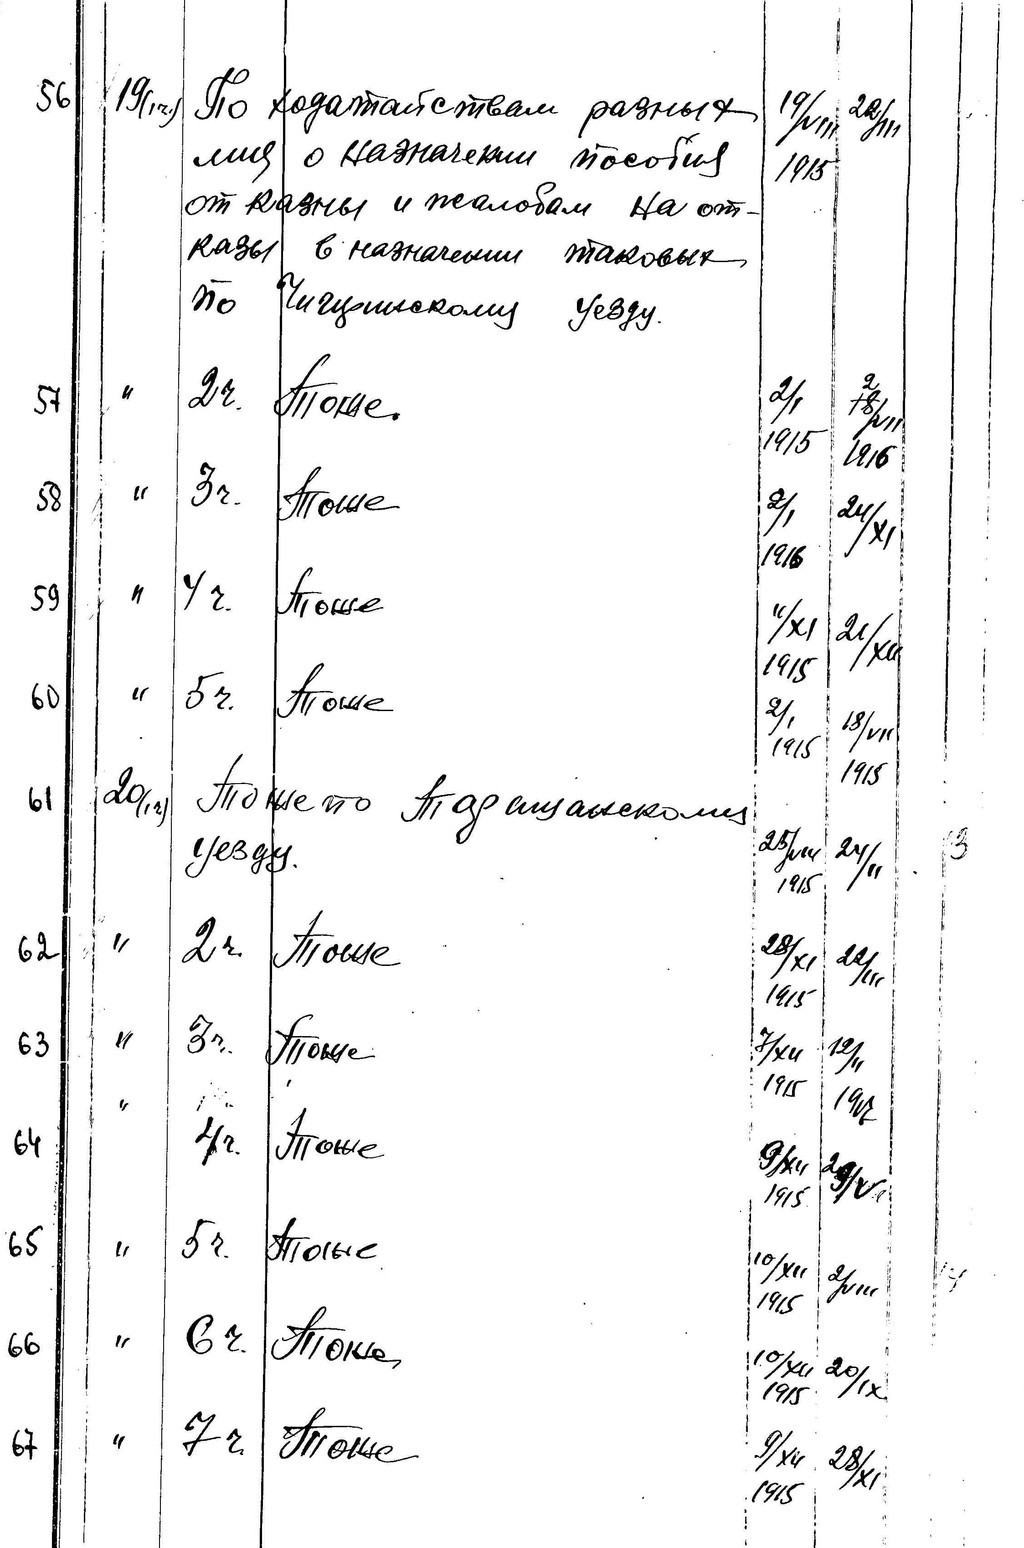 56 19(1ч.) По ходатайствам разных 19/VIII 22/III
лиц о назначении пособия 1915
от казны и жалобам на от-
казы в назначении таковых
по Чигиринскому уезду.
57 " 2ч. Тоже. 2/I 2/VII
1915 1916
58 " 3ч. Тоже 2/I 24/XI
1916
59 " 4ч. Тоже 11/XI 21/XII
1915
60 " 5ч. Тоже 2/I 18/VII
1915 1915
61 20(1ч) Тоже по Таращанскому
уезду. 25/VIII 24/II 13
1915
62 " 2ч. Тоже 28/XI 22/III
1915
63 " 3ч. Тоже 7/XII 12/II
" 1915 1917
64 4ч. Тоже 9/XII
1915
65 " 5ч. Тоже 10/XII 2/VIII
1915
66 " 6ч. Тоже 10/XII 20/IX
1915
67 " 7ч. Тоже 9/XII 28/XI
1915